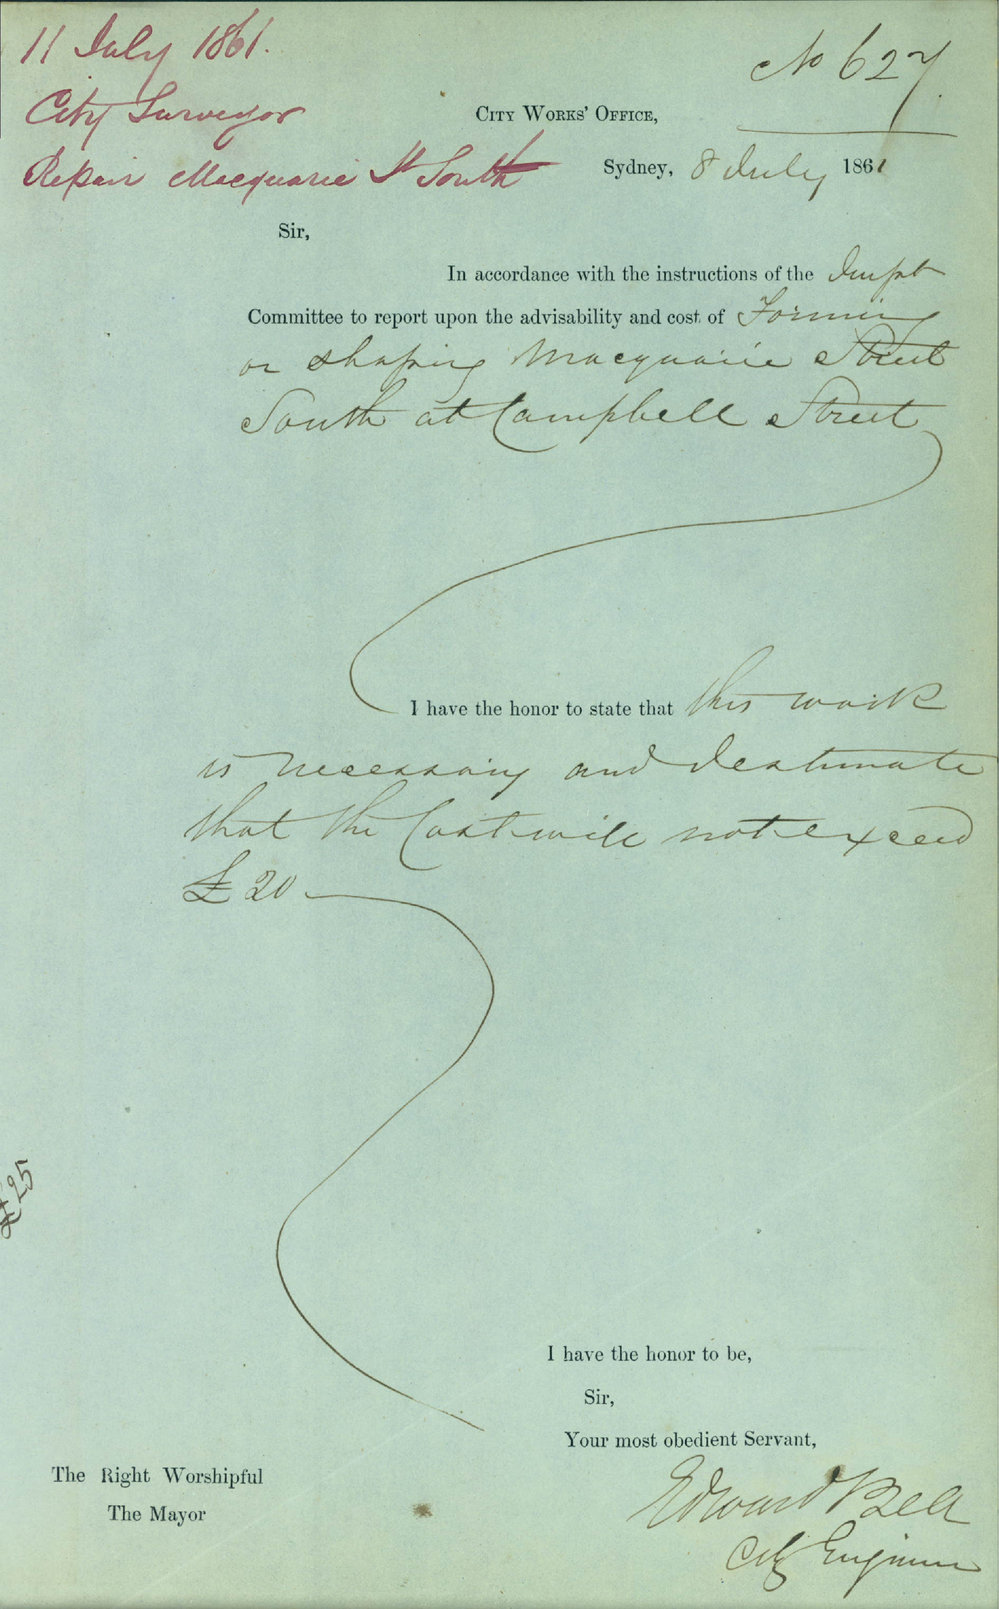 11 July 1861.
City Surveyor
Repair Macquarie St South
No 627
City Works' Office,
Sydney, 8 July 1861
Sir,
In accordance with the instructions of the Impt
Committee to report upon the advisability and cost of Forming
or shaping Macquarie Street
South at Campbell Street
I have the honor to state that this work
is necessary and I estimate
that the Cost will not exceed
£20
£25
I have the honor to be,
Sir,
Your most obedient Servant,
Edward Bell
City Engineer
The Right Worshipful
The Mayor